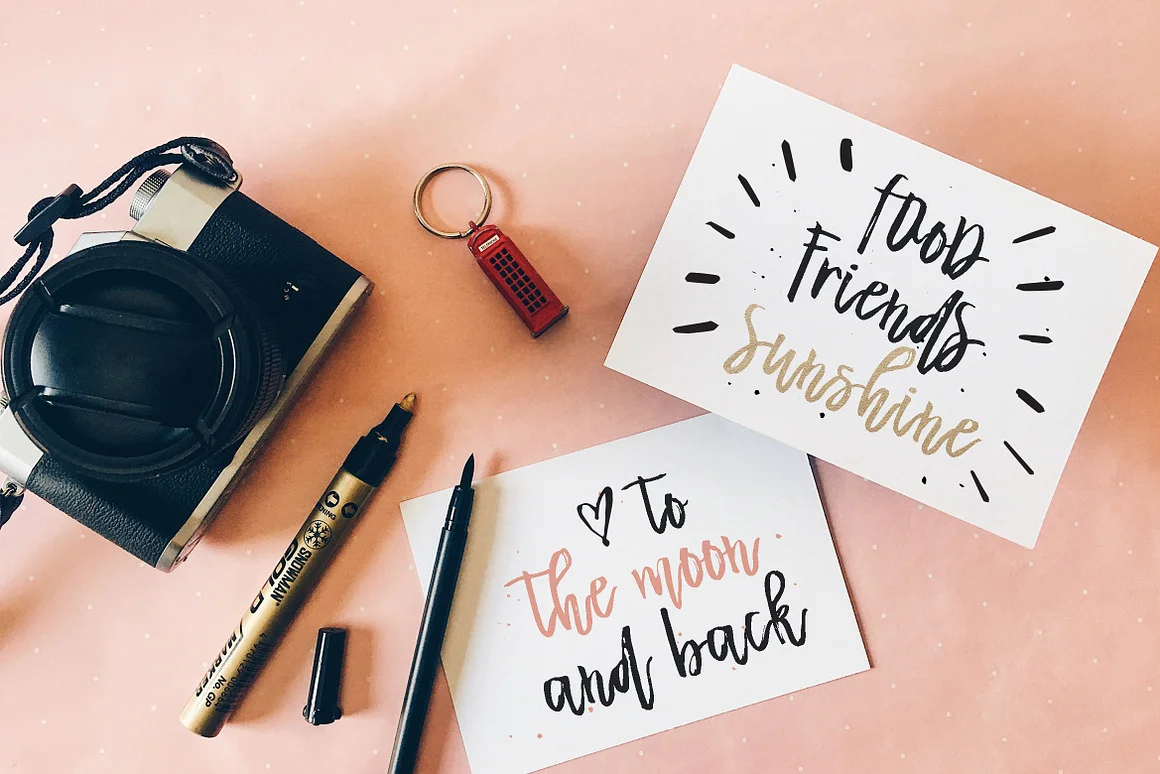 fOOD
Friends
Sunshine
to
the moon
and back
SNOWMAN
GOLD
MARKER
No. GP